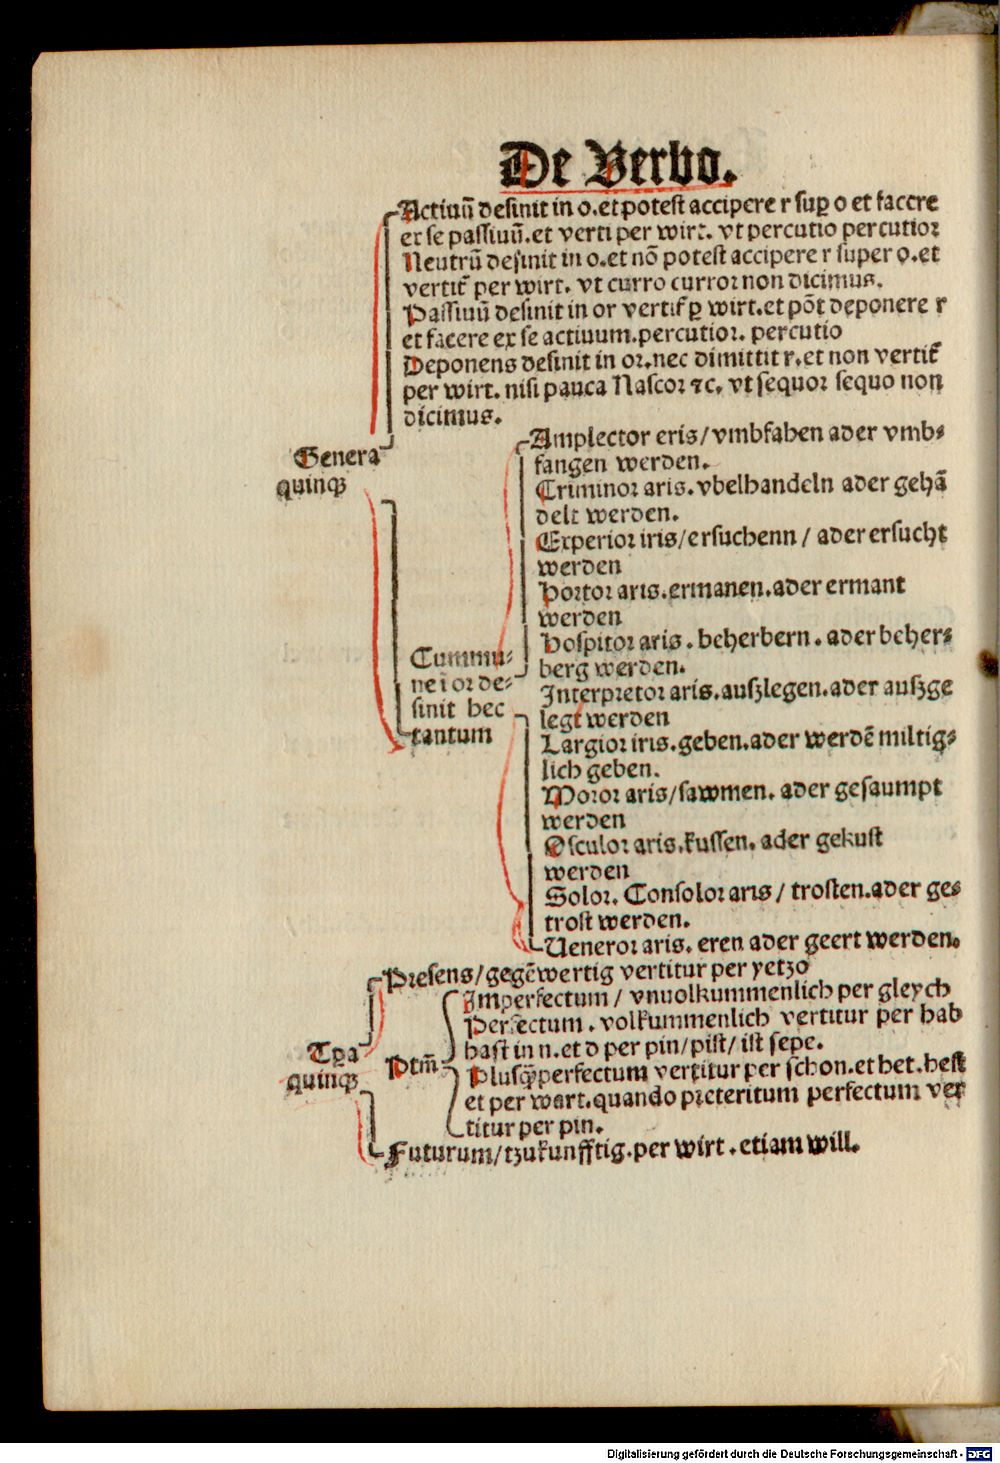 De Verbo.
Actiuū desinit in o. et potest accipere r sup o et facere
ex se passiuū. et verti per wirt. vt percutio percutior
Neutrū desinit in o. et nō potest accipere r super o. et
vertit̄ per wirt. vt curro curror non dicimus.
Passiuū desinit in or vertit̄ ꝑ wirt. et pōt deponere r
et facere ex se actiuum. percutior. percutio
Deponens desinit in or. nec dimittit r. et non vertit̄
per wirt. nisi pauca Nascor ⁊c. vt sequor sequo non
dicimus.
Genera
quinqꝫ
Cummu⸗
ne i or de⸗
sinit hec
tantum
Amplector eris/ vmbfahen ader vmb⸗
fangen werden.
Criminor aris. vbelhandeln ader gehā
delt werden.
Experior iris/ ersuchenn / ader ersucht
werden
Hortor aris. ermanen. ader ermant
werden
Hospitor aris. beherbern. ader beher⸗
berg werden.
Interpretor aris. auſzlegen. ader auſzge
legt werden
Largior iris. geben. ader werdē miltig⸗
lich geben.
Moror aris/ sawmen. ader gesaumpt
werden
Osculor aris. kussen. ader gekust
werden
Solor. Consolor aris / trosten. ader ge⸗
trost werden.
Ueneror aris. eren ader geert werden.
Presens/ gegēwertig vertitur per yetzo
Imperfectum / vnuolkummenlich per gleych
Perfectum. volkummenlich vertitur per hab
hast in n. et d per pin/ pist/ ist sepe.
Tꝑa
quinqꝫ
Ptm̄
Plusqꝫperfectum vertitur per schon. et het. hest
et per wart. quando preteritum perfectum ver
titur per pin.
Futurum/ tzukunfftig. per wirt. etiam will.
Digitalisierung gefördert durch die Deutsche Forschungsgemeinschaft - DFG